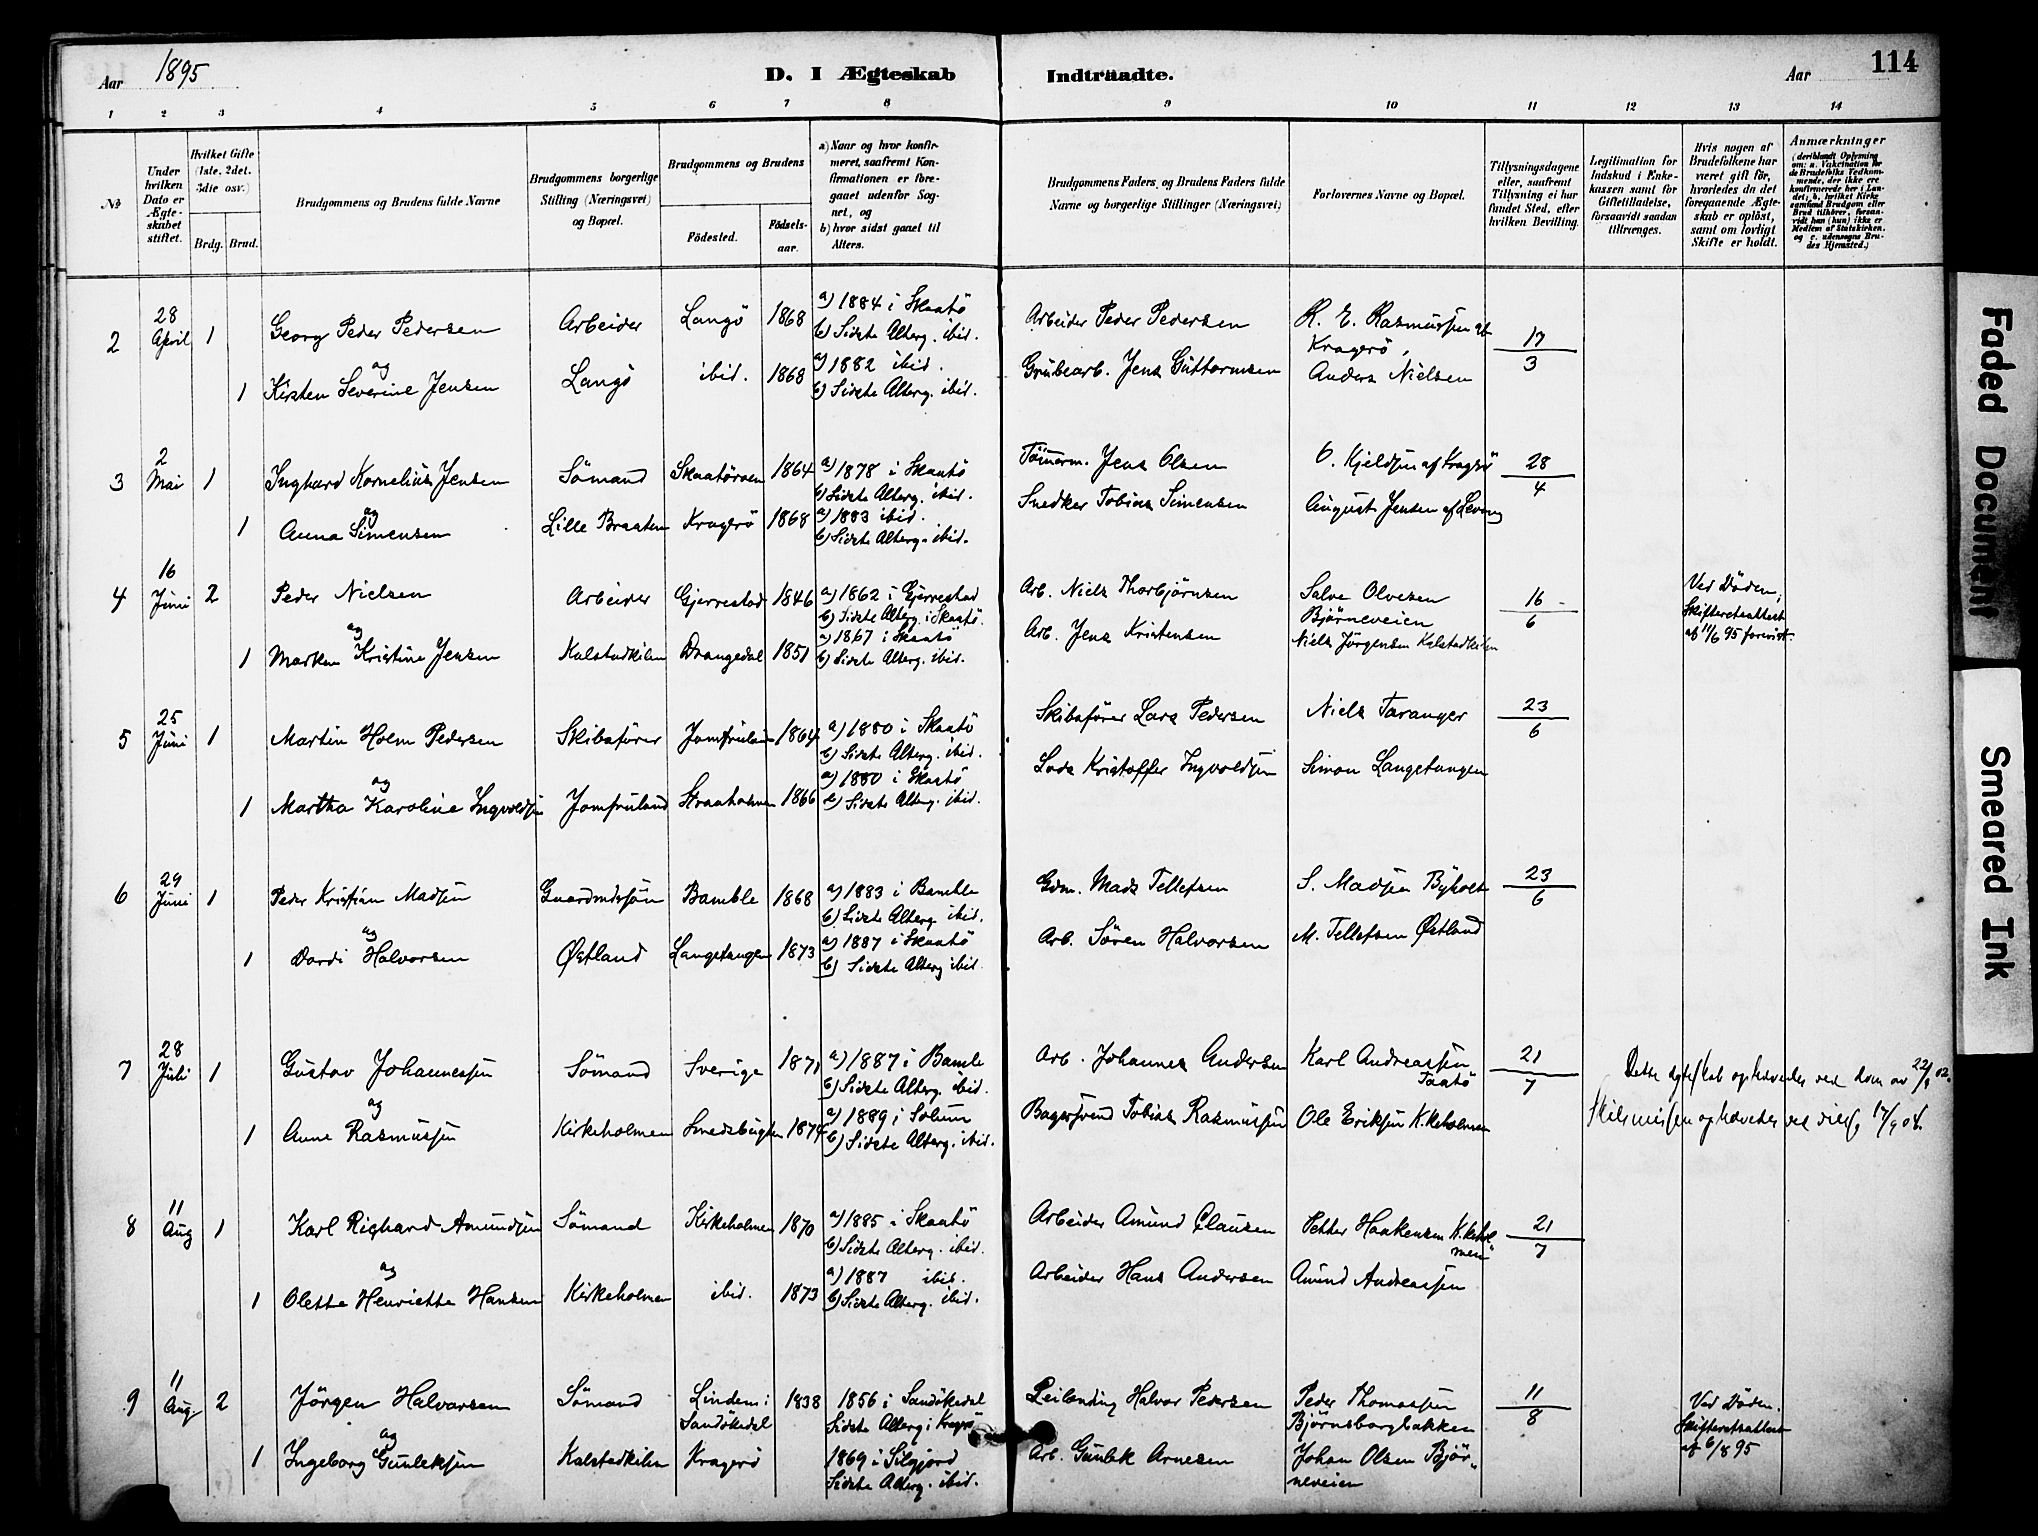 Aar 1895
D. I Ægteskab Indtraadte.
Aar
114
1 2 3 4 5 6 7 8 9 10 11 12 13 14
No
Under hvilken Dato er Ægteskabet stiftet.
Hvilket Gifte (1ste, 2det. 3die osv.)
Brdg. Brud.
Brudgommens og Brudens fulde Navne
Brudgommens borgerlige Stilling (Næringsvei) og Bopæl.
Brudgommens og Brudens
Fødested.
Fødsels-aar.
a) Naar og hvor konfirmeret, saafremt Konfirmationen er foregaaet udenfor Sognet, og
b) hvor sidst gaaet til Alters.
Brudgommens Faders og Brudens Faders fulde Navne og borgerlige Stillinger (Næringsvei)
Forlovernes Navne og Bopæl.
Tillysningsdagene eller, saafremt Tillysning ei har fundet Sted, efter hvilken Bevilling.
Legitimation for Indskud i Enkekassen samt for Giftetilladelse, forsaavidt saadan tiltrænges.
Hvis nogen af Brudefolkene har været gift før, hvorledes da det foregaaende Ægteskab er opløst, samt om lovligt Skifte er holdt.
Anmærkninger
(deriblandt Oplysning om: a. Vakcination for de Brudefolks Vedkommende, der ikke ere konfirmerede her i Landet; b. hvilket Kirkesamfund Brudgom eller Brud tilhører, forsaavidt han (hun) ikke er Medlem af Statskirken, og c. udensogns Brudes Hjemsted.)
2 28 April 1 Georg Peder Pedersen Arbeider Langö 1868 a) 1884 i Skaatö
b) Sidste Alterg. ibid.
Arbeider Peder Pedersen R. E. Rasmussen af Kragerö, 17/3
og
1 Kirsten Severine Jensen Langö ibid. 1868 a) 1882 ibid.
b) Sidste Alterg. ibid.
Grubearb. Jens Guttormsen Anders Nielsen
3 2 Mai 1 Inghard Kornelius Jensen Sömand Skaatöroen 1864 a) 1878 i Skaatö
b) Sidste Alterg. ibid.
Tömmerm. Jens Olsen O. Kjeldsen af Kragerö 28/4
og
1 Anna Simensen Lille Braaten Kragerö 1868 a) 1883 ibid.
b) Sidste Alterg. ibid.
Snedker Tobias Simensen August Jensen af Levang
4 16 Juni 2 Peder Nielsen Arbeider Gjerrestad 1846 a) 1862 i Gjerrestad
b) Sidste Alterg. i Skaatö.
Arb. Niels Thorbjörnsen Salve Olvesen Björneveien 16/6
Ved Döden; Skifteretsattest af 11/6 95 forevist.
og
1 Maren Kristine Jensen Kalstadkilen Drangedal 1851 a) 1867 i Skaatö
b) Sidste Alterg. ibid.
Arb. Jens Kristensen Niels Jörgensen Kalstadkilen
5 25 Juni 1 Martin Holm Pedersen Skibsförer Jomfruland 1864 a) 1880 i Skaatö
b) Sidste Alterg. ibid.
Skibsförer Lars Pedersen Niels Taranger 23/6
og
1 Martha Karoline Ingvoldsen Jomfruland Straaholmen 1866 a) 1880 i Skaatö
b) Sidste Alterg. ibid.
Lods Kristoffer Ingvoldsen Simon Langetangen
6 29 Juni 1 Peder Kristian Madsen Gaardmdssön Bamble 1868 a) 1883 i Bamble
b) Sidste Alterg. ibid.
Gdm. Mads Tellefsen S. Madsen Byholt 23/6
og
1 Dordi Halvorsen Østland Langetangen 1873 a) 1887 i Skaatö
b) Sidste Alterg. ibid.
Arb. Sören Halvorsen M. Tellefsen Østland
7 28 Juli 1 Gustav Johannessen Sömand Sverige 1871 a) 1887 i Bamle
b) Sidste Alterg. ibid.
Arb. Johannes Andersen Karl Andreassen Taatö 21/7
Dette ægteskab ophævedes ved dom av 22/9 02.
og
1 Anne Rasmussen Kirkeholmen Smedsbugten 1874 a) 1889 i Solum
b) Sidste Alterg. ibid.
Bagersvend Tobias Rasmussen Ole Eriksen K.keholmen
Skilsmissen ophævedes ved 17/9 04.
8 11 Aug 1 Karl Righard Amundsen Sömand Kirkeholmen 1870 a) 1885 i Skaatö
b) Sidste Alterg. ibid.
Arbeider Amund Clausen Petter Haakensen K.kehol-men 21/7
og
1 Olette Henriette Hansen Kirkeholmen ibid. 1873 a) 1887 ibid.
b) Sidste Alterg. ibid.
Arbeider Hans Andersen Amund Andreassen
9 11 Aug. 2 Jörgen Halvorsen Sömand Lindem i Sandökedal 1838 1856 i Sandökedal
Sidste Alterg i Kragerö
Leilending Halvor Pedersen Peder Thomassen Björnsborgbakken 11/8
Ved Döden. Skifteretsattest af 6/8 95
og
1 Ingeborg Gunleksen Kalstadkilen Kragerö 1869 i Silgjord
Sidste Alterg. ibid.
Arb. Gunlek Arnesen Johan Olsen Björ-neveien
Faded Document
Smeared Ink